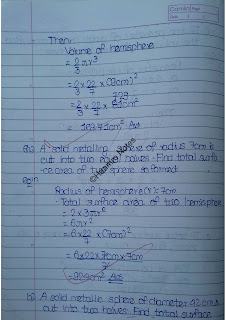 Then,
Volume of hemisphere
= 2/3 πr³
= 2/3 × 22/7 × (9cm)³
= 2/3 × 22/7 × 729 cm³
= cm³ Ans
A solid metallic sphere of radius 7cm is
cut into two equal halves. Find total surf
ace area of two sphere so formed.
Soln
Radius of hemisphere (r) = 7cm
Total surface area of two hemisphere
= 2 × 3πr²
= 6πr²
= 6 × 22/7 × (7cm)²
= 6×22×7cm×7cm
7
= 924cm² Ans
b) A solid metallic sphere of diameter 42cm is
cut into two halves. Find total surface